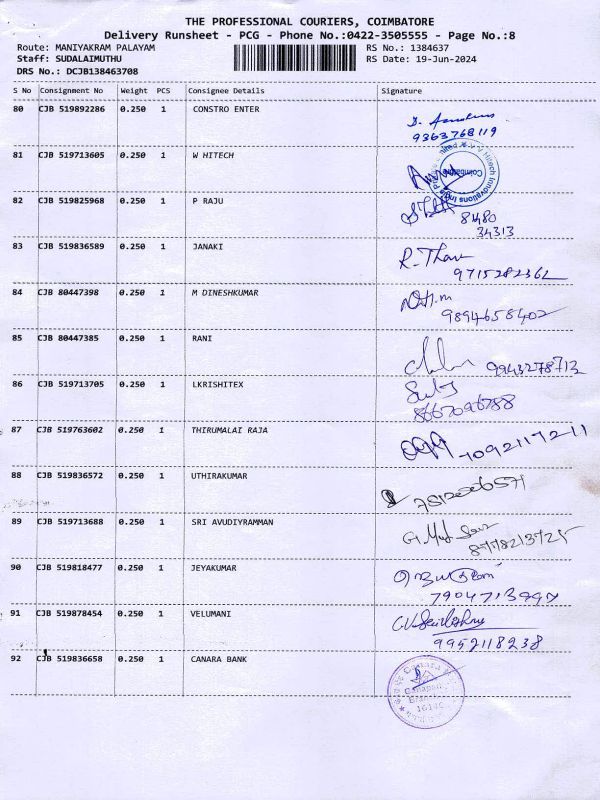 THE PROFESSIONAL COURIERS, COIMBATORE
Delivery Runsheet - PCG - Phone No.:0422-3505555 - Page No.:8
Route: MANIYAKRAM PALAYAM RS No.: 1384637
Staff: SUDALAIMUTHU RS Date: 19-Jun-2024
DRS No.: DCJB138463708
S No Consignment No Weight PCS Consignee Details Signature
80 CJB 519892286 0.250 1 CONSTRO ENTER
9363768119
81 CJB 519713605 0.250 1 W HITECH
Hitech Innovations
Coimbatore
82 CJB 519825968 0.250 1 P RAJU
8480
34313
83 CJB 519836589 0.250 1 JANAKI
R. Thav
9715282362
84 CJB 80447398 0.250 1 M DINESHKUMAR
9894658402
85 CJB 80447385 0.250 1 RANI
9943278713
86 CJB 519713705 0.250 1 LKRISHITEX
8667096788
87 CJB 519763602 0.250 1 THIRUMALAI RAJA
7092117211
88 CJB 519836572 0.250 1 UTHIRAKUMAR
89 CJB 519713688 0.250 1 SRI AVUDIYRAMMAN
8778213725
90 CJB 519818477 0.250 1 JEYAKUMAR
91 CJB 519878454 0.250 1 VELUMANI
9952118238
92 CJB 519836658 0.250 1 CANARA BANK
Canara
Ganapathy
Branch